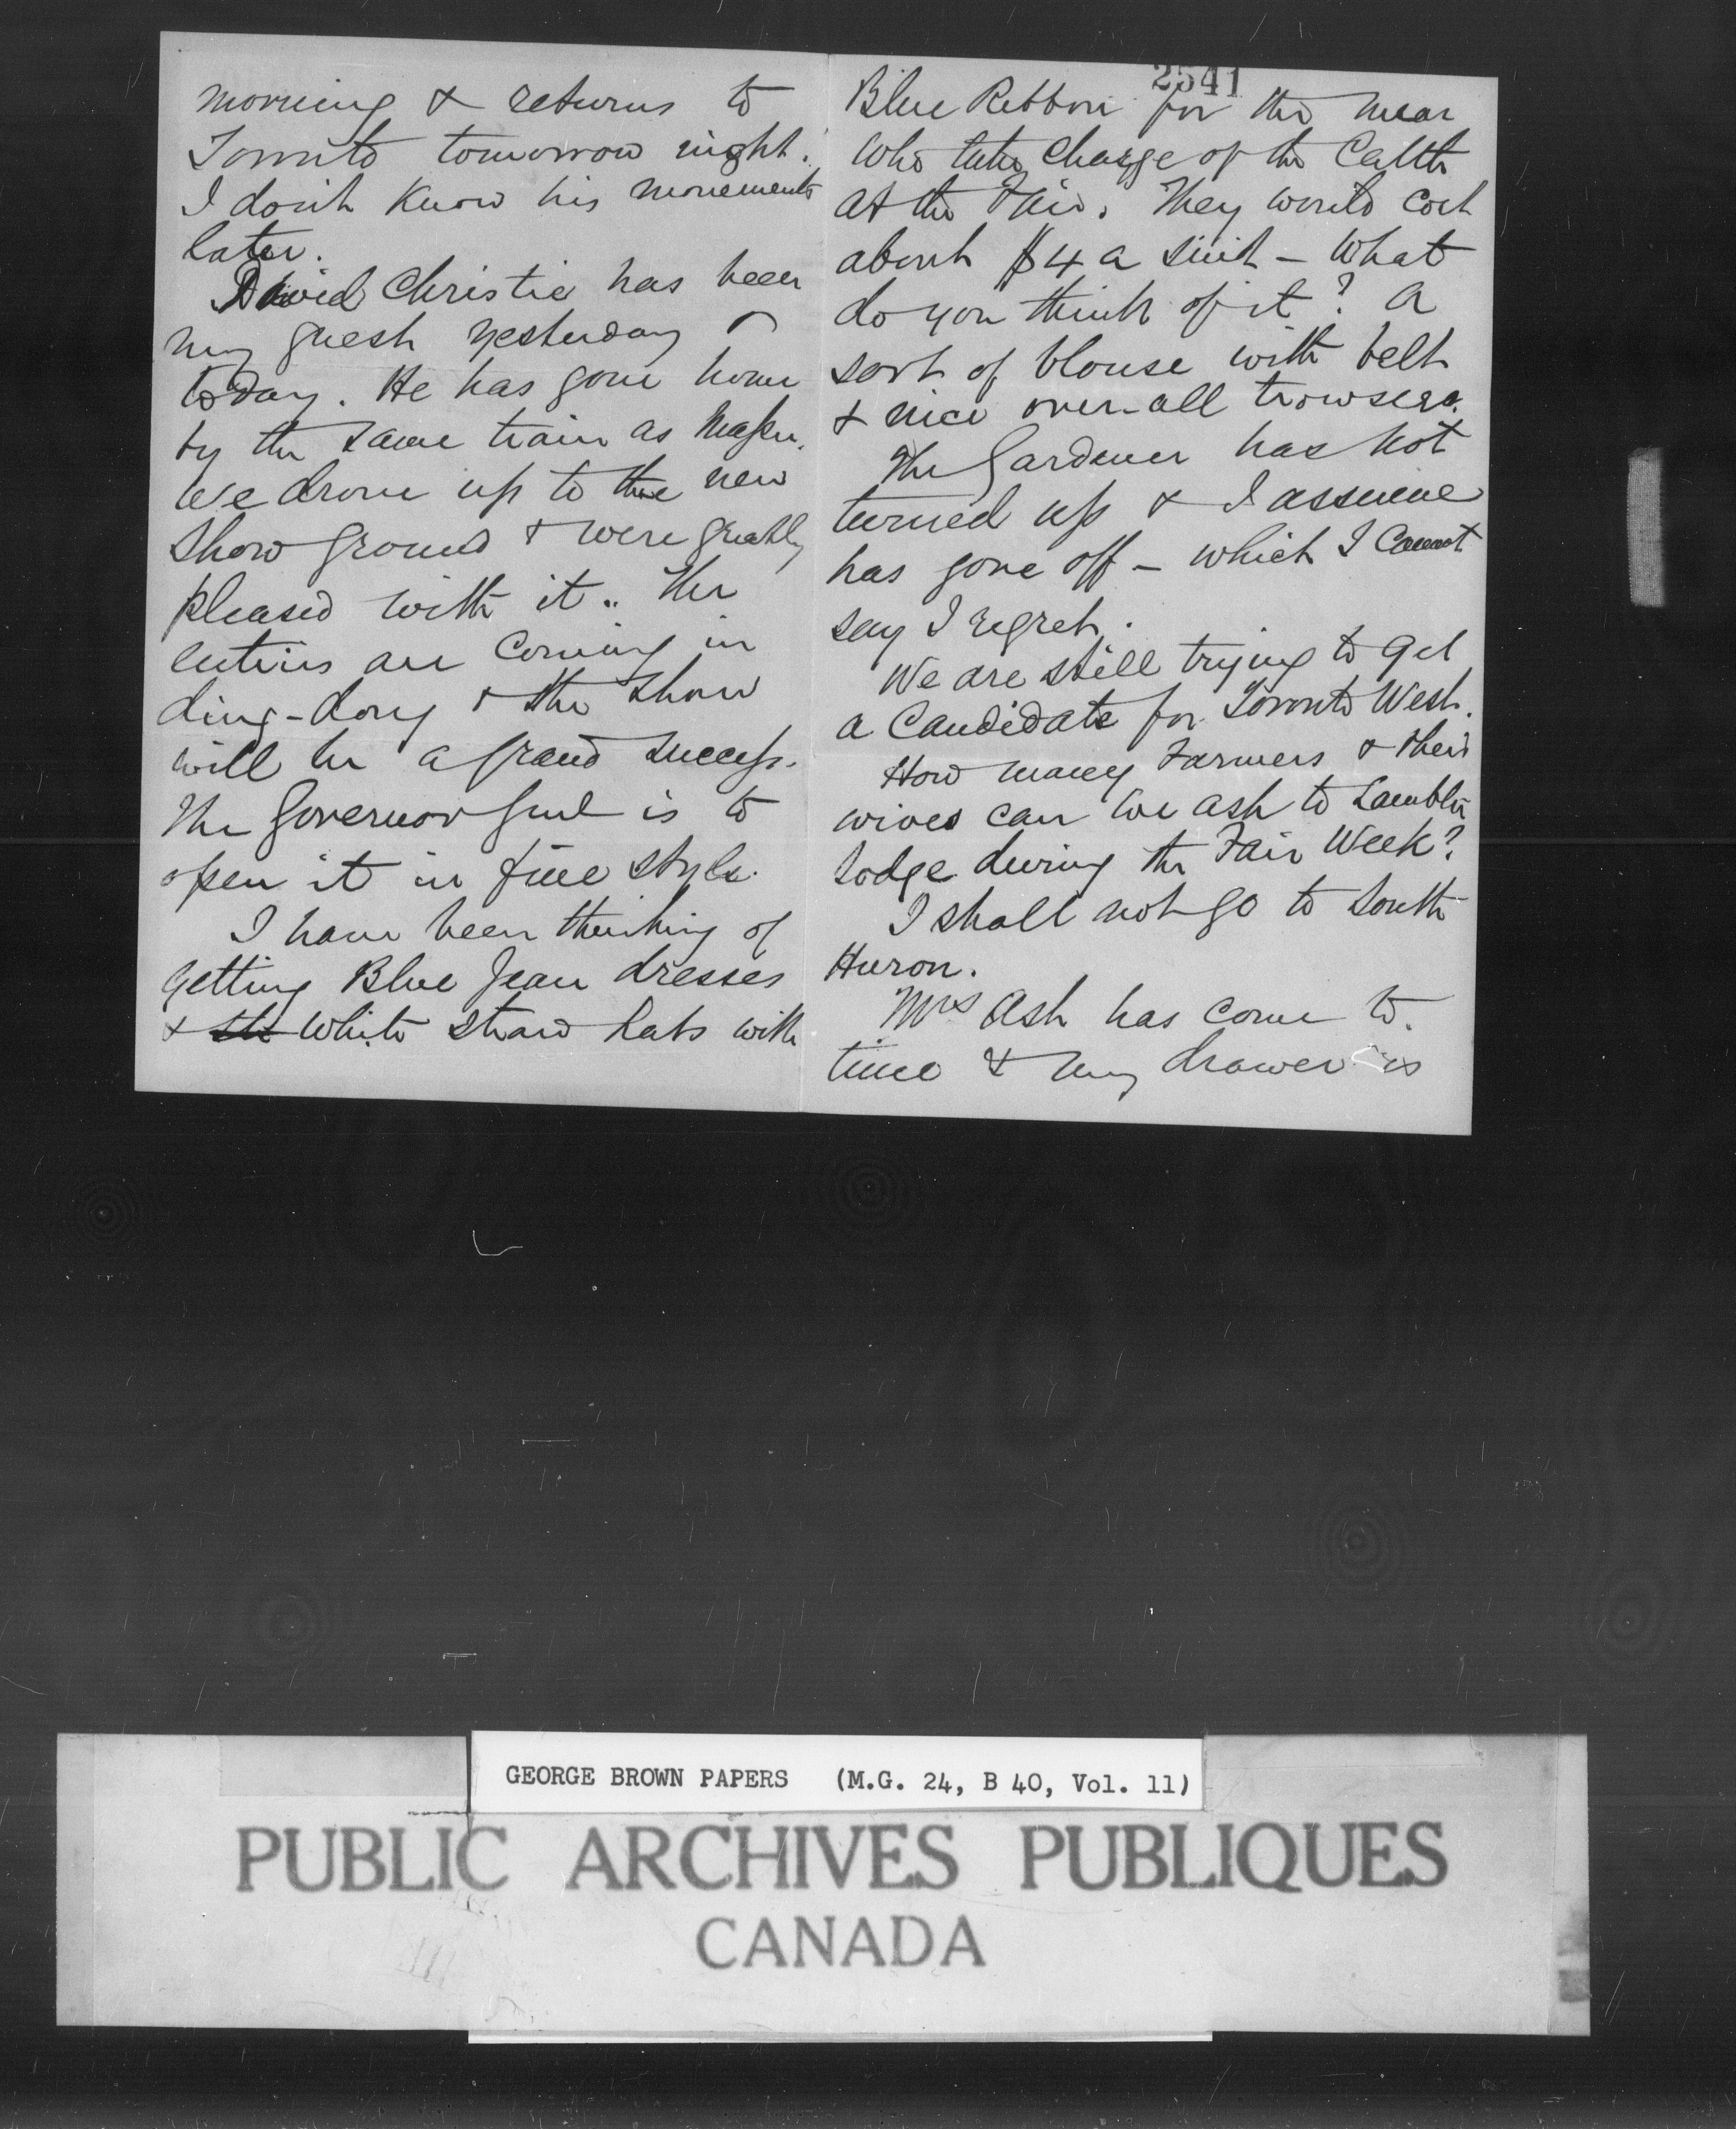 morning & returns to
Toronto tomorrow night.
I don't know his movements
later.
David Christie has been
my guest yesterday &
today. He has gone home
by the same train as
We drove up to the new
show ground & were greatly
pleased with it. The
entries are coming in
ding-dong & the show
will be a grand success.
The Governor Genl is to
open it in fine style.
I have been thinking of
getting Blue Jean dresses
& white straw hats with
2541
Blue Ribbon for the men
who take charge of the Cattle
at the Fair. They would cost
about $4 a suit – What
do you think of it? A
sort of blouse with belt
& nice over-all trowsers.
The Gardener has not
turned up & I assume
has gone off – which I cannot
say I regret.
We are still trying to get
a Candidate for Toronto West.
How many Farmers & their
wives can we ask to Lambton
Lodge during the Fair Week?
I shall not go to South
Huron.
Mrs Ash has come to
time & my drawer is
GEORGE BROWN PAPERS (M.G. 24, B 40, Vol. 11)
PUBLIC ARCHIVES PUBLIQUES
CANADA